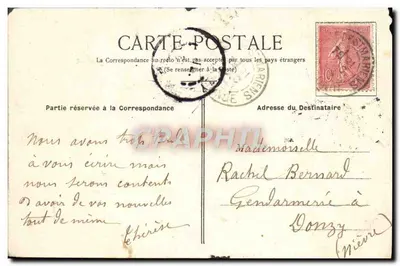 CARTE POSTALE
La Correspondance au recto n'est pas acceptée par tous les pays étrangers
(Se renseigner à la Poste)
Partie réservée à la Correspondance
Adresse du Destinataire
Nous avons trop
à vous écrire mais
nous serons contents
d'avoir de vos nouvelles
tout de même
Thérèse
Mademoiselle
Rachel Bernard
Gendarmerie à
Donzy
(Nièvre)